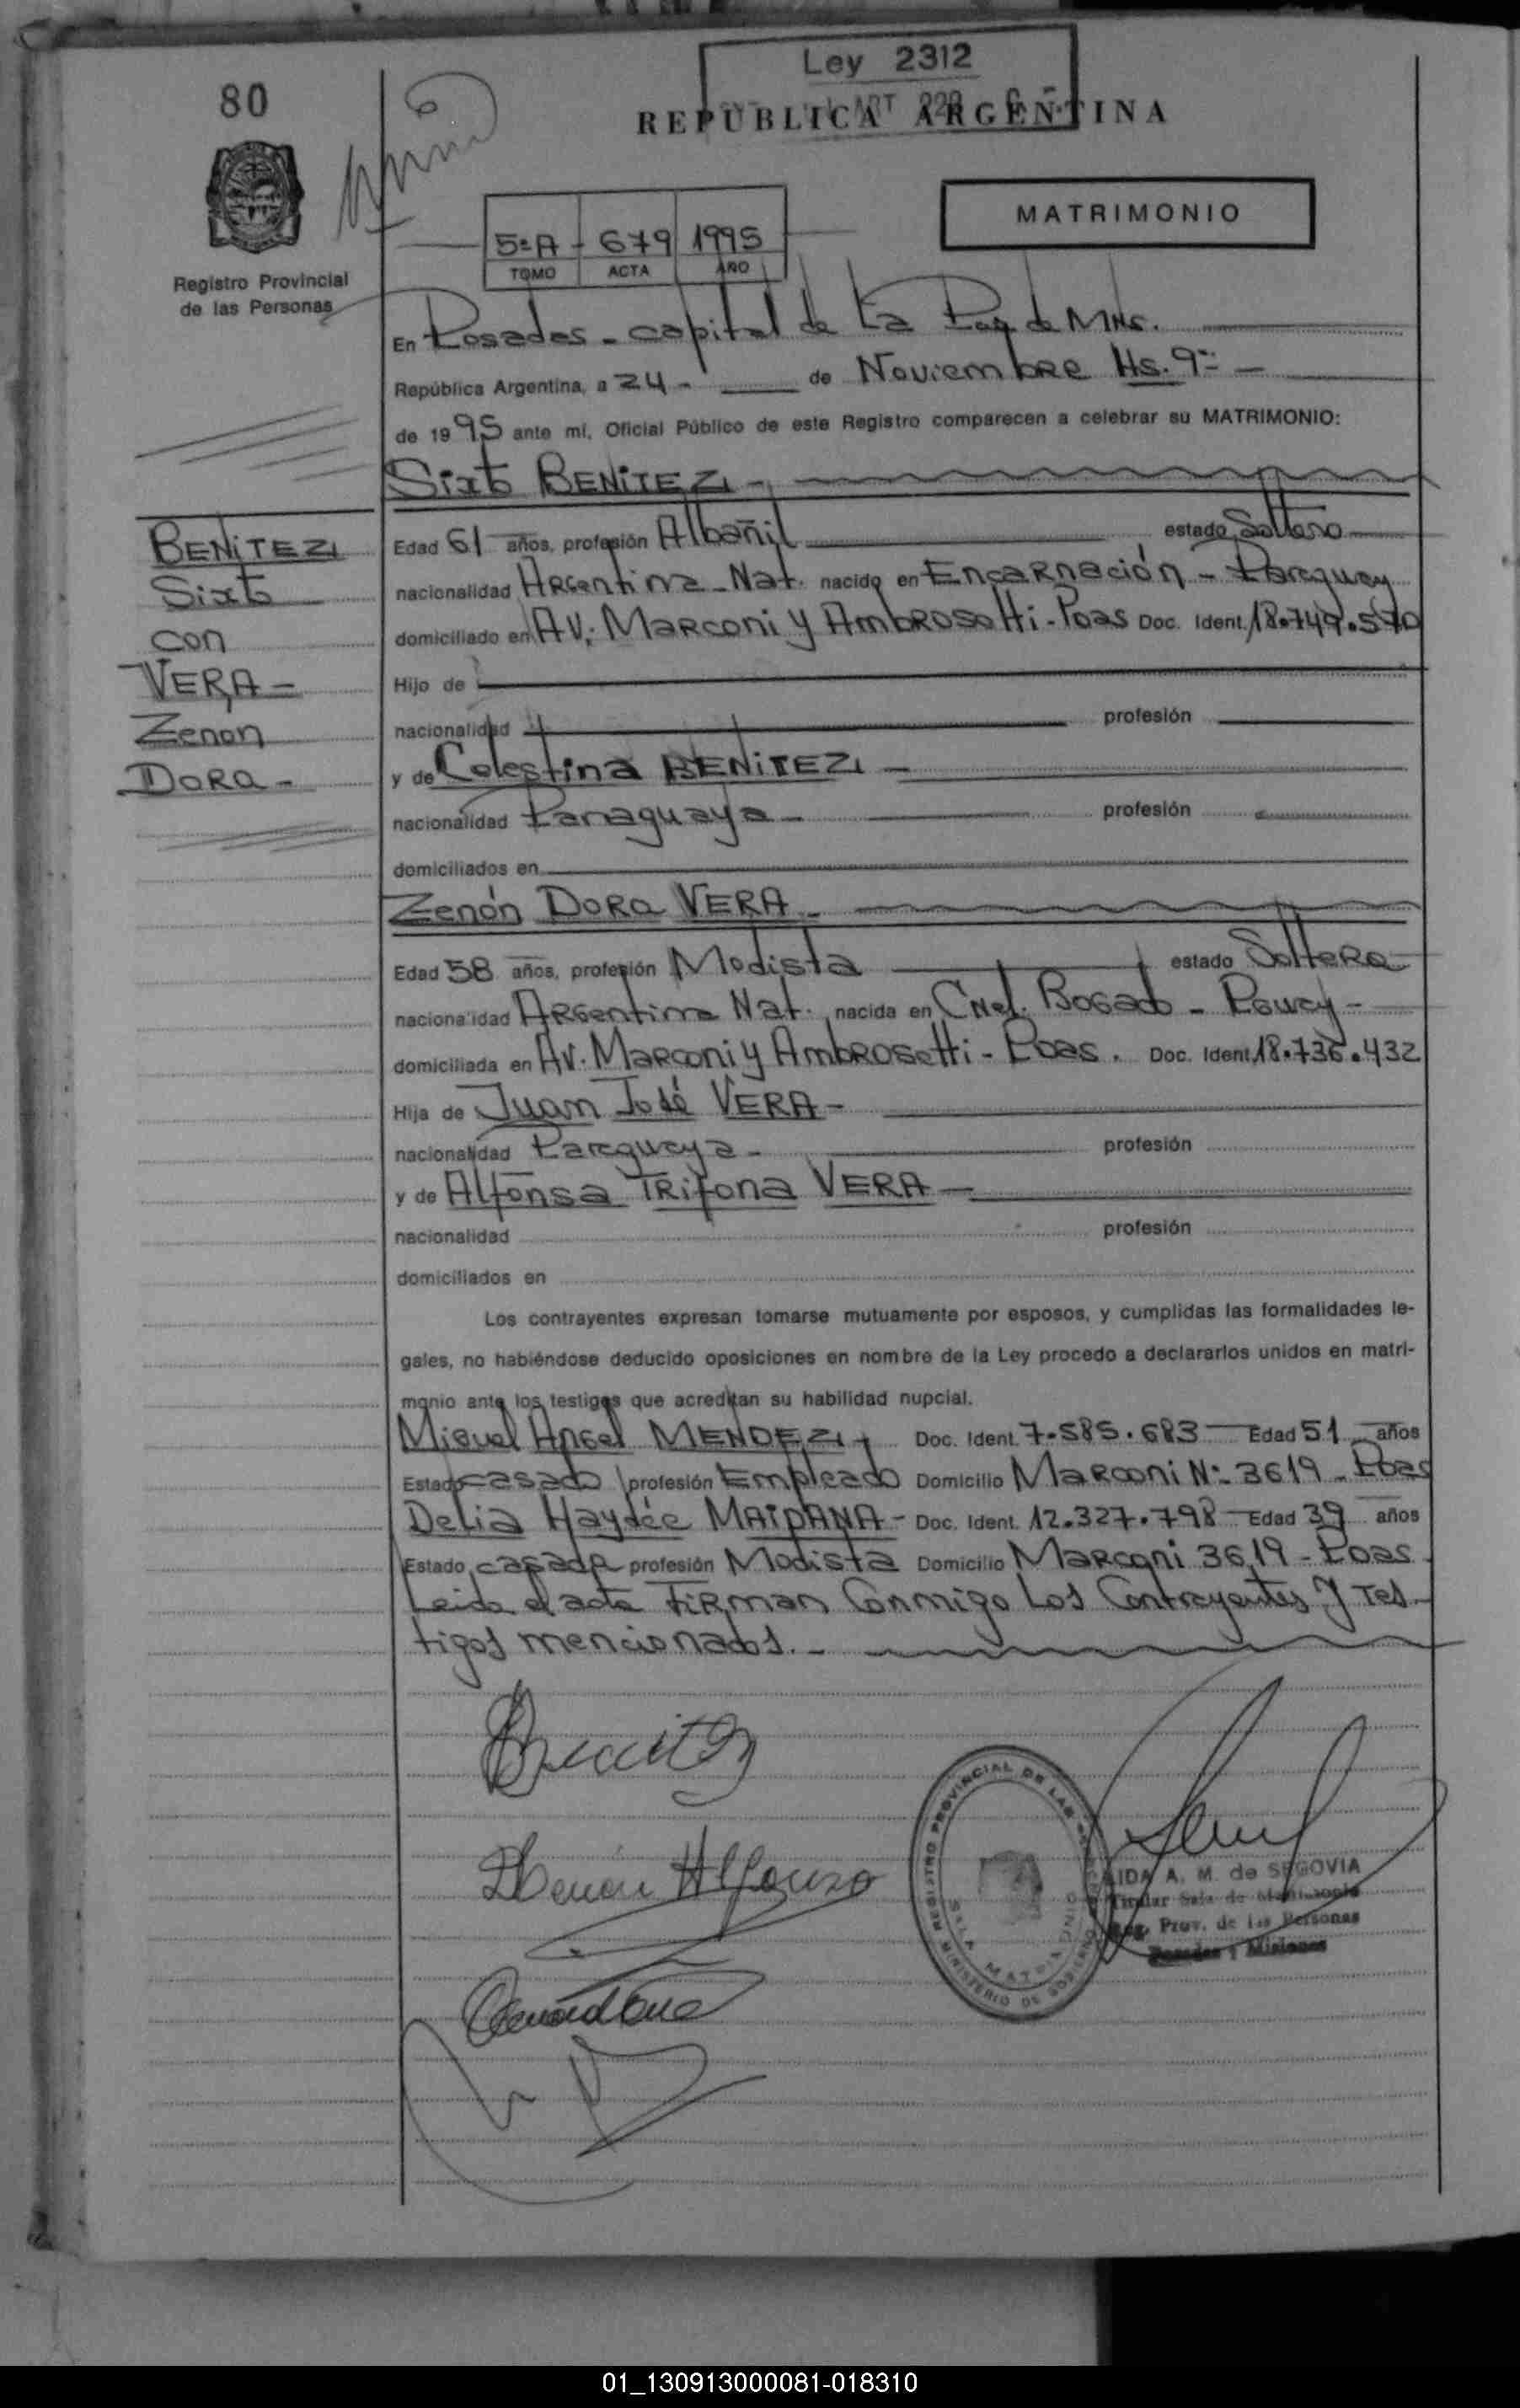 Ley 2312
80
REPUBLICA ARGENTINA
MATRIMONIO
5ºA - 679 1995
TOMO ACTA AÑO
Registro Provincial
de las Personas
En Posadas - capital de La Pcia de Mnes.
República Argentina, a 24 - de Noviembre Hs. 9 -
de 1995 ante mí, Oficial Público de este Registro comparecen a celebrar su MATRIMONIO:
Sixto BENITEZ -
BENITEZ
Sixto
con
VERA -
Zenón
DORA -
Edad 61 años, profesión Albañil estado Soltero
nacionalidad Argentina - Nat. nacido en Encarnación - Paraguay
domiciliado en AV. Marconi y Ambrosetti - Pdas Doc. Ident. 18.749.570
Hijo de
nacionalidad profesión
y de Celestina BENITEZ -
nacionalidad Paraguaya - profesión
domiciliados en
Zenón Dora VERA -
Edad 58 años, profesión Modista estado Soltera
nacionalidad Argentina Nat. nacida en Cnel. Bogado - Pguay -
domiciliada en AV. Marconi y Ambrosetti - Pdas. Doc. Ident. 18.736.432
Hija de Juan José VERA -
nacionalidad Paraguaya - profesión
y de Alfonsa Trifona VERA -
nacionalidad profesión
domiciliados en
Los contrayentes expresan tomarse mutuamente por esposos, y cumplidas las formalidades le-
gales, no habiéndose deducido oposiciones en nombre de la Ley procedo a declararlos unidos en matri-
monio ante los testigos que acreditan su habilidad nupcial.
Miguel Angel MENDEZ - Doc. Ident. 7.585.683 - Edad 51 años
Estado casado profesión Empleado Domicilio Marconi Nº 3619 - Pdas
Delia Haydée MAIDANA - Doc. Ident. 12.327.798 - Edad 39 años
Estado casada profesión Modista Domicilio Marconi 3619 - Pdas
Leida el acta Firman Conmigo Los Contrayentes y Tes-
tigos mencionados. -
REGISTRO PROVINCIAL DE LAS PERSONAS
SALA MATRIMONIO
MINISTERIO DE GOBIERNO
AIDA A. M. de SEGOVIA
Titular Sala de Matrimonio
Reg. Prov. de las Personas
Posadas - Misiones
01_130913000081-018310